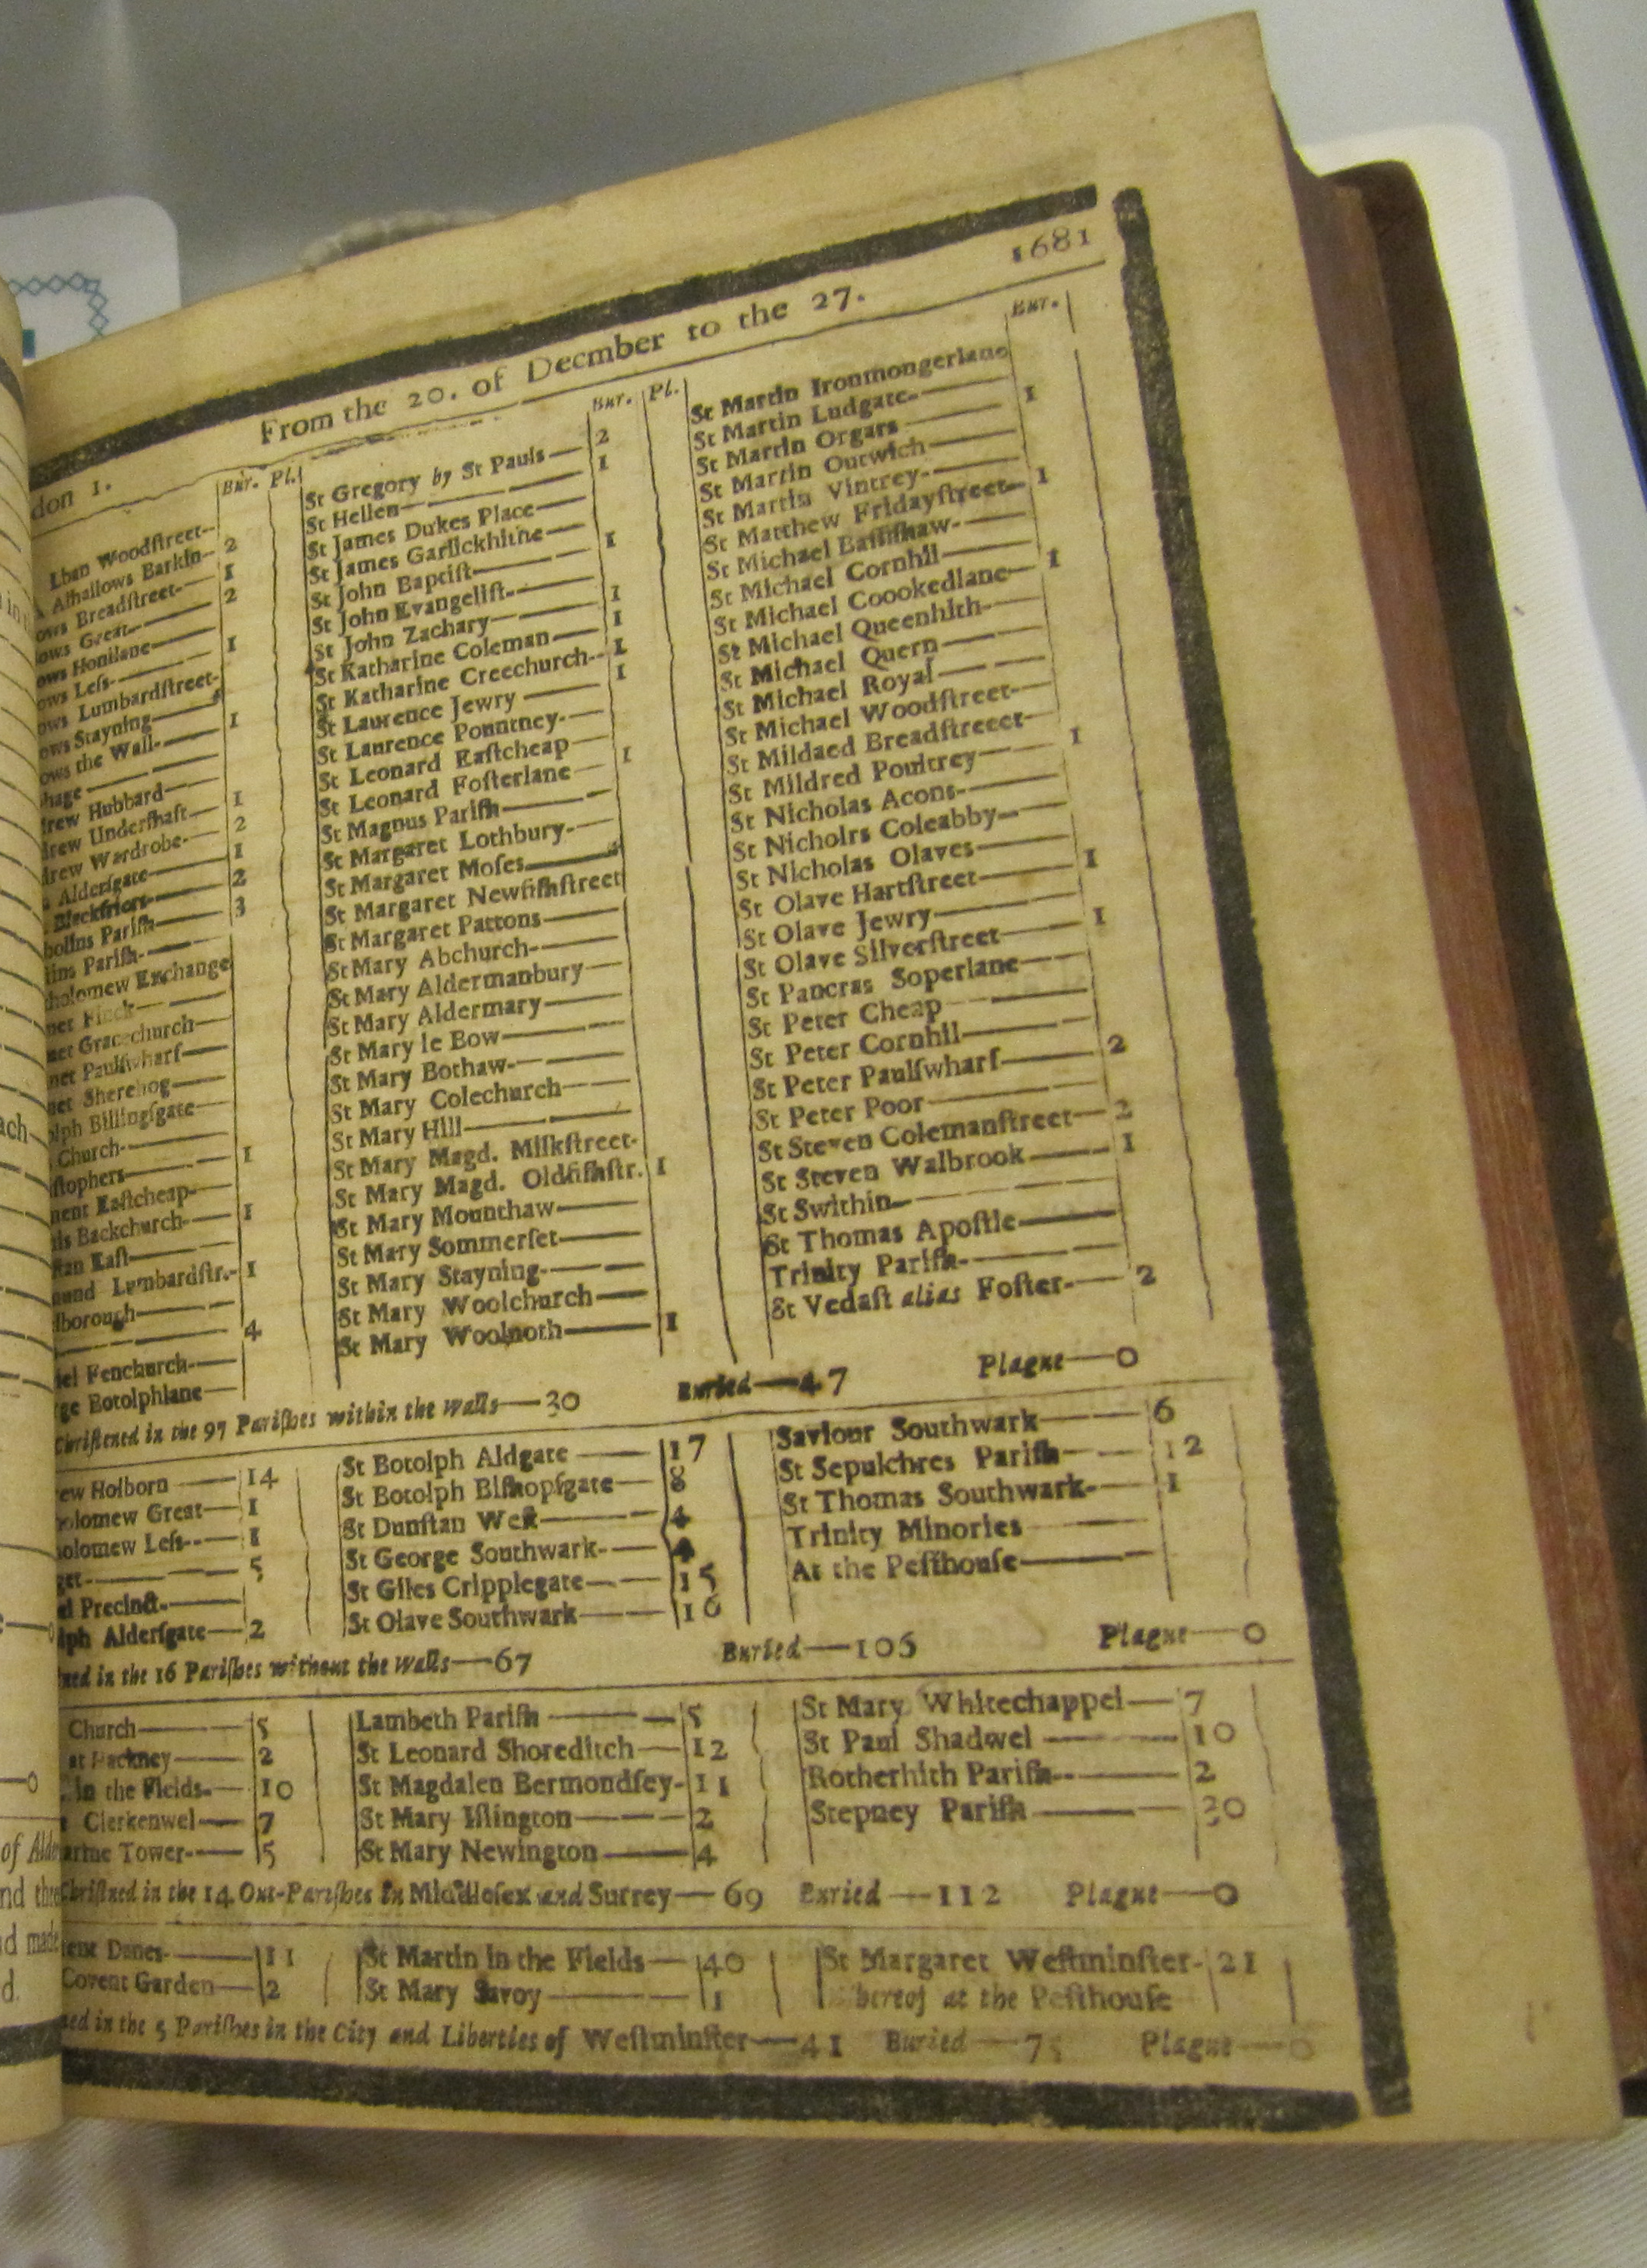 1681
From the 20. of Decmber to the 27.
don 1.
Bur. Pl.
Lban Woodſtreet-
Alhallows Barkin- 2
ows Breadſtreet- 1
ows Great 2
ows Honilane
ows Leſs- 1
ows Lumbardſtreet-
ows Stayning
ows the Wall- 1
hage
drew Hubbard
drew Underſhaft 1
drew Wardrobe- 2
Alderſgate 1
Blackfriors 2
bolins Pariſh 3
tins Pariſh-
holomew Exchange
net Finck
net Gracechurch
net Paulſwharf
net Sherehog
olph Billingſgate
Church-
ſtophers 1
ment Eaſtcheap-
nis Backchurch- 1
ſtan Eaſt
mund Lumbardſtr.- 1
lborough
4
iel Fenchurch-
rge Botolphlane
Bur. Pl.
St Gregory by St Pauls 2
St Hellen 1
St James Dukes Place
St James Garlickhithe
St John Baptiſt 1
St John Evangeliſt-
St John Zachary 1
St Katharine Coleman 1
St Katharine Creechurch- 1
St Laurence Jewry 1
St Laurence Pountney-
St Leonard Eaſtcheap
St Leonard Foſterlane 1
St Magnus Pariſh
St Margaret Lothbury-
St Margaret Moſes
St Margaret Newfiſhſtreet
St Margaret Pattons
St Mary Abchurch-
St Mary Aldermanbury
St Mary Aldermary
St Mary le Bow
St Mary Bothaw-
St Mary Colechurch
St Mary Hill
St Mary Magd. Milkſtreet-
St Mary Magd. Oldfiſhſtr. 1
St Mary Mounthaw
St Mary Sommerſet
St Mary Stayning-
St Mary Woolchurch
St Mary Woolnoth 1
Bur.
St Martin Ironmongerlane
St Martin Ludgate- 1
St Martin Orgars
St Martin Outwich
St Martin Vintrey- 1
St Matthew Fridayſtreet
St Michael Baſſiſhaw-
St Michael Cornhil 1
St Michael Coookedlane
St Michael Queenhith-
St Michael Quern
St Michael Royal
St Michael Woodſtreet-
St Mildaed Breadſtreeet- 1
St Mildred Poultrey
St Nicholas Acons-
St Nicholrs Coleabby
St Nicholas Olaves 1
St Olave Hartſtreet
St Olave Jewry 1
St Olave Silverſtreet
St Pancras Soperlane
St Peter Cheap
St Peter Cornhil
St Peter Paulſwharf 2
St Peter Poor
St Steven Colemanſtreet 2
St Steven Walbrook 1
St Swithin
St Thomas Apoſtle
Trinity Pariſh-
St Vedaſt alias Foſter- 2
Chriſtened in the 97 Pariſhes within the walls—30 Buried—47 Plague—0
ew Holborn 14
holomew Great 1
holomew Leſs-- 1
get 5
el Precinct-
lph Alderſgate 2
St Botolph Aldgate 17
St Botolph Biſhopſgate 8
St Dunſtan Weſt 4
St George Southwark- 4
St Giles Cripplegate 15
St Olave Southwark 16
Saviour Southwark 6
St Sepulchres Pariſh 12
St Thomas Southwark- 1
Trinity Minories
At the Peſthouſe
ned in the 16 Pariſhes without the walls—67 Buried—106 Plague—0
Church 5
at Hackney 2
in the Fields- 10
Clerkenwel 7
arine Tower- 5
Lambeth Pariſh 5
St Leonard Shoreditch 12
St Magdalen Bermondſey- 11
St Mary Iſlington 2
St Mary Newington 4
St Mary Whitechappel 7
St Paul Shadwel 10
Rotherhith Pariſh-- 2
Stepney Pariſh 30
Chriſtned in the 14 Out-Pariſhes in Middleſex and Surrey—69 Buried—112 Plague—0
ent Danes- 11
Covent Garden 2
St Martin in the Fields 40
St Mary Savoy 1
St Margaret Weſtminſter- 21
hereof at the Peſthouſe
ned in the 5 Pariſhes in the City and Liberties of Weſtminſter—41 Buried—75 Plague—0